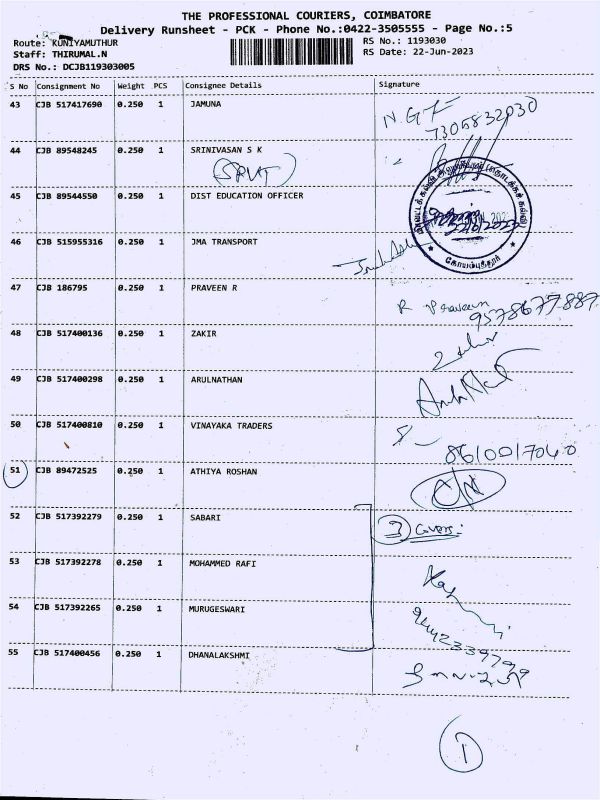 THE PROFESSIONAL COURIERS, COIMBATORE
Delivery Runsheet - PCK - Phone No.:0422-3505555 - Page No.:5
Route: KUNIYAMUTHUR
RS No.: 1193030
Staff: THIRUMAL.N
RS Date: 22-Jun-2023
DRS No.: DCJB119303005
S No Consignment No Weight PCS Consignee Details Signature
43 CJB 517417690 0.250 1 JAMUNA
7305832030
44 CJB 89548245 0.250 1 SRINIVASAN S K
45 CJB 89544550 0.250 1 DIST EDUCATION OFFICER
46 CJB 515955316 0.250 1 JMA TRANSPORT
கோயம்புத்தூர்
47 CJB 186795 0.250 1 PRAVEEN R
R Praveen
9578677887
48 CJB 517400136 0.250 1 ZAKIR
49 CJB 517400298 0.250 1 ARULNATHAN
50 CJB 517400810 0.250 1 VINAYAKA TRADERS
8610017040
51 CJB 89472525 0.250 1 ATHIYA ROSHAN
C/N
52 CJB 517392279 0.250 1 SABARI
3 Covers:
53 CJB 517392278 0.250 1 MOHAMMED RAFI
54 CJB 517392265 0.250 1 MURUGESWARI
9442339799
55 CJB 517400456 0.250 1 DHANALAKSHMI
1